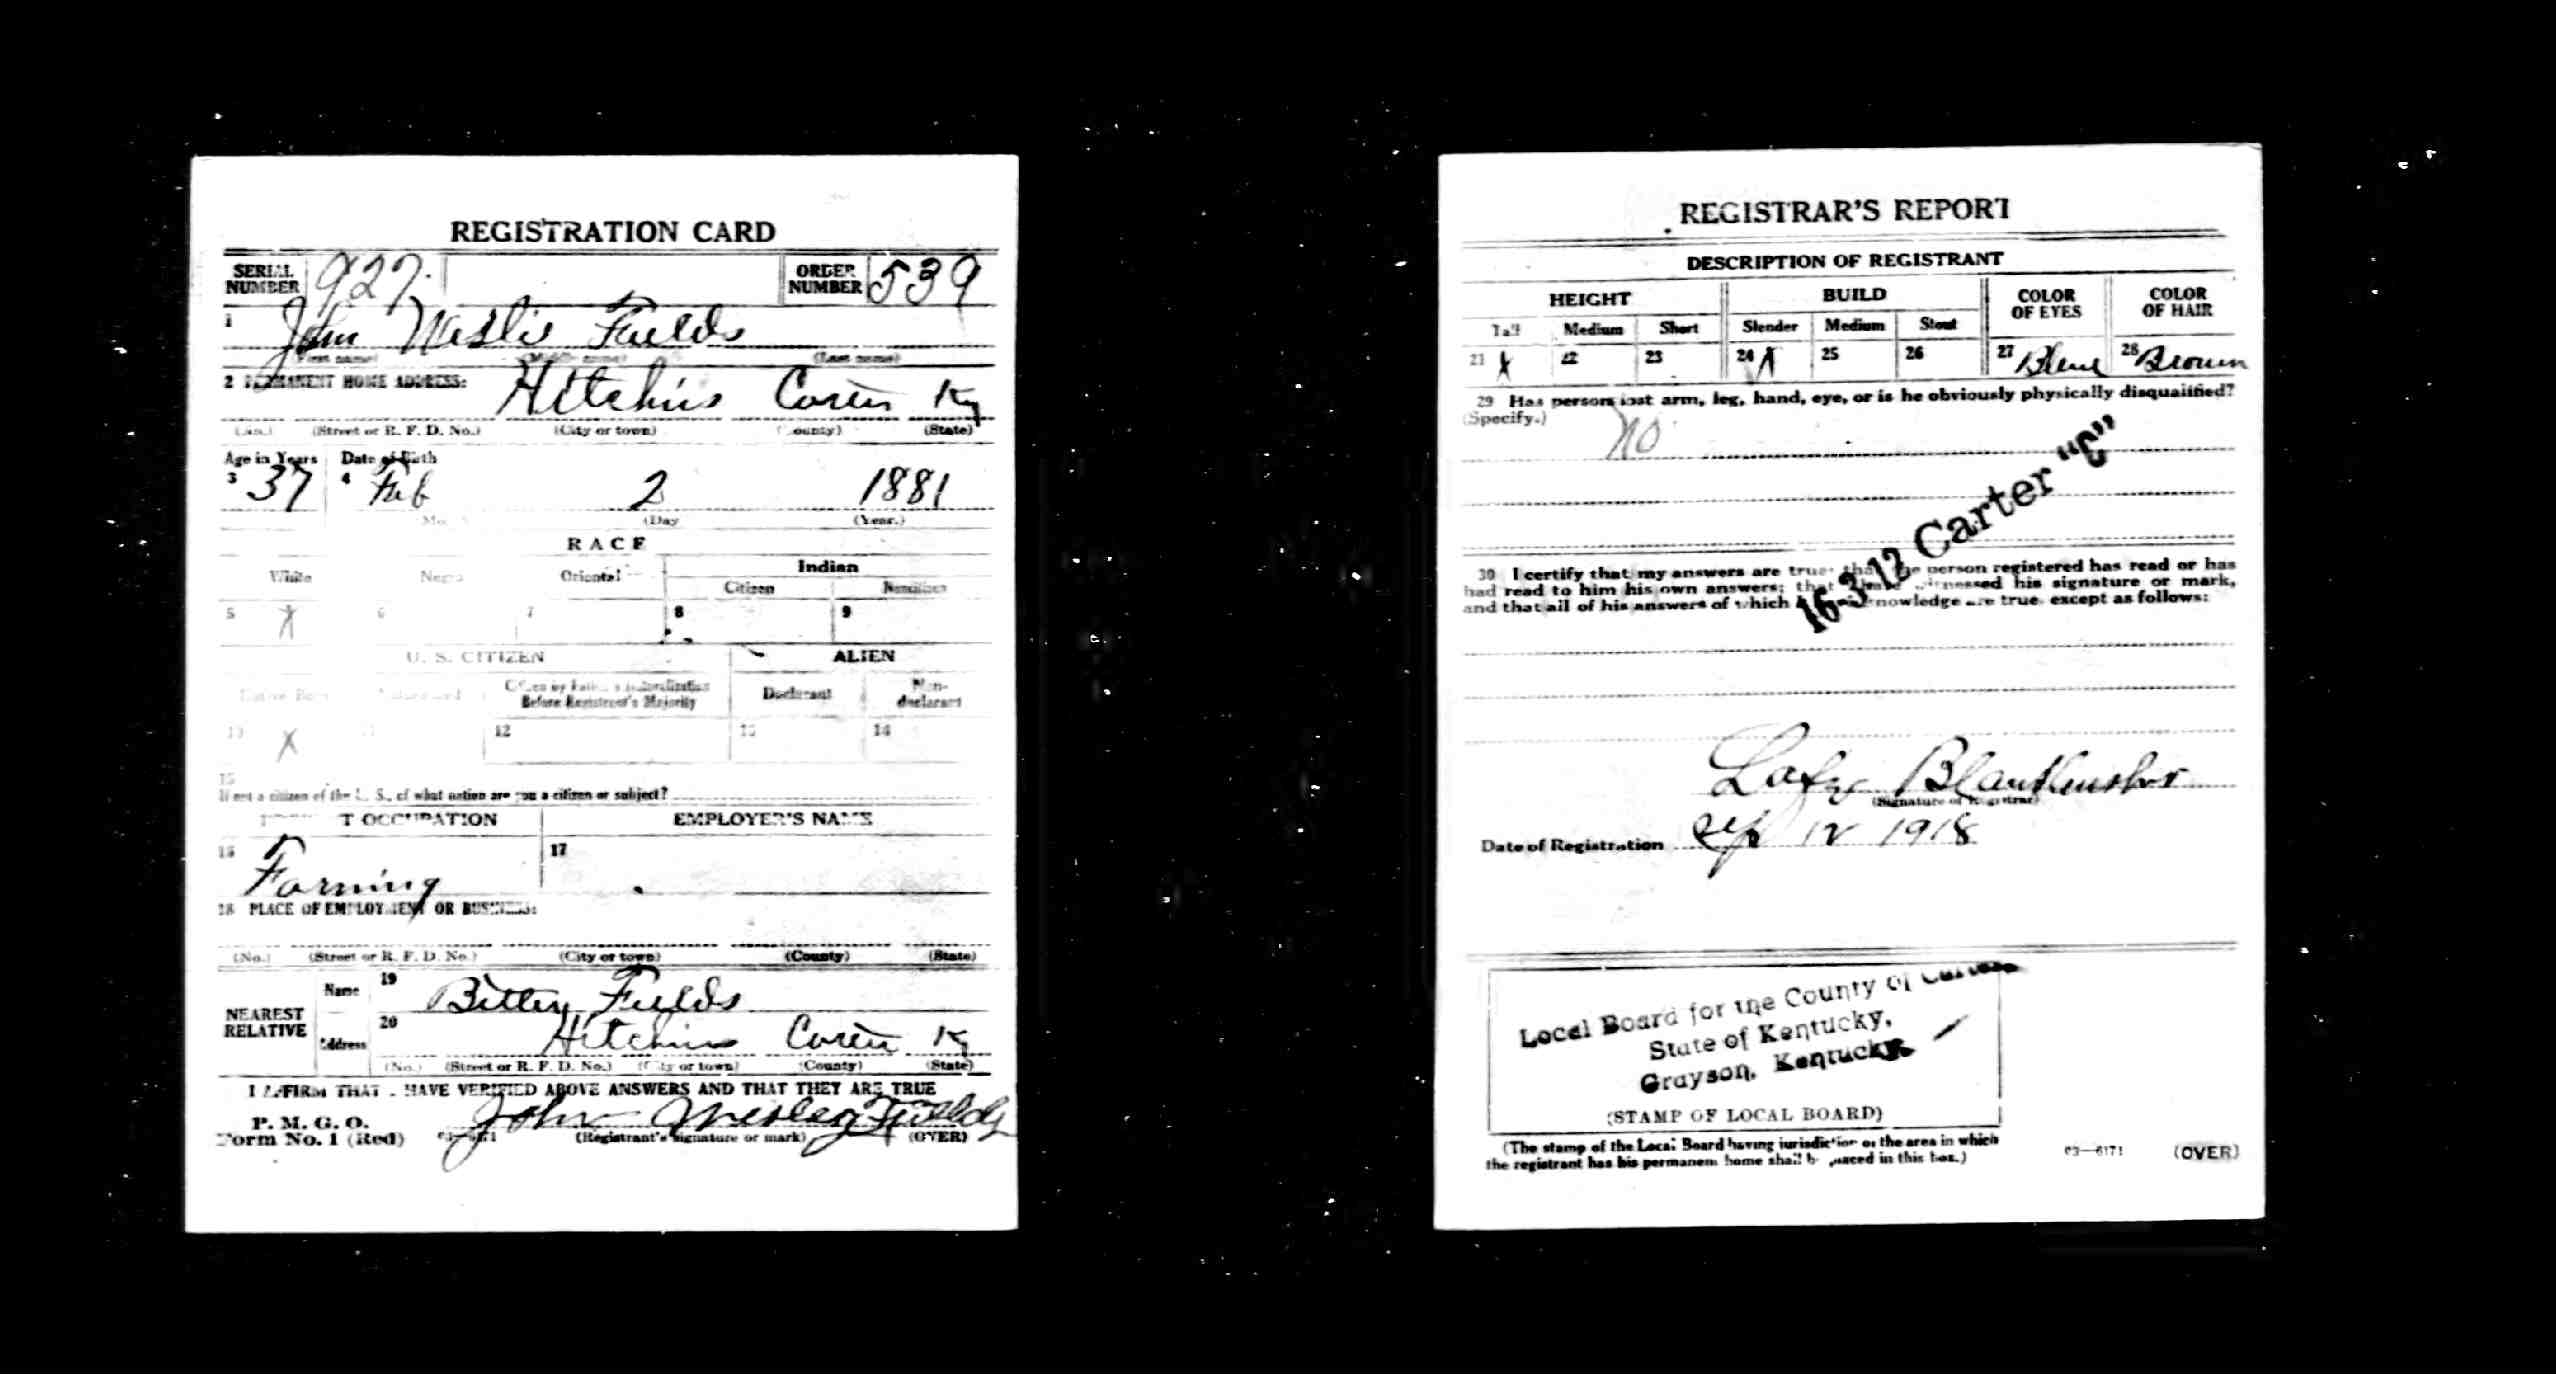 REGISTRATION CARD
SERIAL NUMBER 927. ORDER NUMBER 539
1 John Weslie Fields
(First name) (Middle name) (Last name)
2 PERMANENT HOME ADDRESS: Hitchins Carter Ky
(No.) (Street or R. F. D. No.) (City or town) (County) (State)
Age in Years Date of Birth
3 37 4 Feb 2 1881
(Day (Year.)
RACE
White Negro Oriental Indian
Citizen Noncitizen
5 X 6 7 8 9
U. S. CITIZEN ALIEN
Native Born Naturalized Citizen by Father's Naturalization Before Registrant's Majority Declarant Non-declarant
10 X 11 12 13 14
15
If not a citizen of the U. S., of what nation are you a citizen or subject?
T OCCUPATION EMPLOYER'S NAME
16 Farming 17
18 PLACE OF EMPLOYMENT OR BUSINESS:
(No.) (Street or R. F. D. No.) (City or town) (County) (State)
NEAREST RELATIVE Name 19 Bettey Fields
Address 20 Hitchins Carter Ky
(No.) (Street or R. F. D. No.) (City or town) (County) (State)
I AFFIRM THAT I HAVE VERIFIED ABOVE ANSWERS AND THAT THEY ARE TRUE
P. M. G. O.
Form No. 1 (Red) 03—6171 John Wesley Fields
(Registrant's signature or mark) (OVER)
REGISTRAR'S REPORT
DESCRIPTION OF REGISTRANT
HEIGHT BUILD COLOR OF EYES COLOR OF HAIR
Tall Medium Short Slender Medium Stout
21 X 22 23 24 X 25 26 27 Blue 28 Brown
29 Has person lost arm, leg, hand, eye, or is he obviously physically disqualified?
(Specify.) No
16-3-12 Carter "C"
30 I certify that my answers are true; that the person registered has read or has
had read to him his own answers; that I have witnessed his signature or mark,
and that all of his answers of which I have knowledge are true, except as follows:
Blankenship
(Signature of Registrar)
Date of Registration Sep 12 1918
Local Board for the County of Carter
State of Kentucky,
Grayson, Kentucky
(STAMP OF LOCAL BOARD)
(The stamp of the Local Board having jurisdiction of the area in which
the registrant has his permanent home shall be placed in this box.)
03—6171 (OVER)